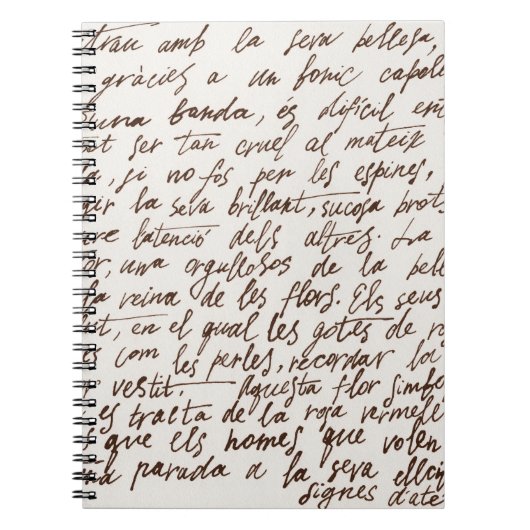 trau amb la seva bellesa,
gràcies a un fonic capell
una banda, és difícil en
ser tan cruel al mateix
la, si no fos per les espines,
gir la seva brillant, sucosa prot
re l'atenció dels altres. La
or, una orgullosos de la bell
la reina de les flors. Els seus
at, en el qual les gotes de r
s com les perles, recordar la
r vestit. Aquesta flor simbo
es tracta de la rosa vermell
s que els homes que volen
na parada a la seva
signes d'ate